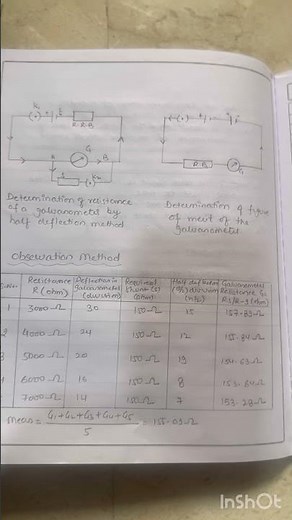 K1
R.B.
G
K2
R.B.
G
Determination of resistance
of a galvanometer by
half deflection method
Determination of figure
of merit of the
galvanometer
Observation Method
Resistance R (ohm) Deflection in galvanometer (division) Required Shunt (S) (ohm) Half deflection division Galvanometer Resistance G
1 3000-Ω 30 150-Ω 15 157.89-Ω
2 4000-Ω 24 150-Ω 12
3 5000-Ω 20 150-Ω 154.63-Ω
6000-Ω 16 150-Ω 8
7000-Ω 14 150-Ω 7 153.28-Ω
Mean = G1+G2+G3+G4+G5 / 5 = 155.03-Ω
InShOt